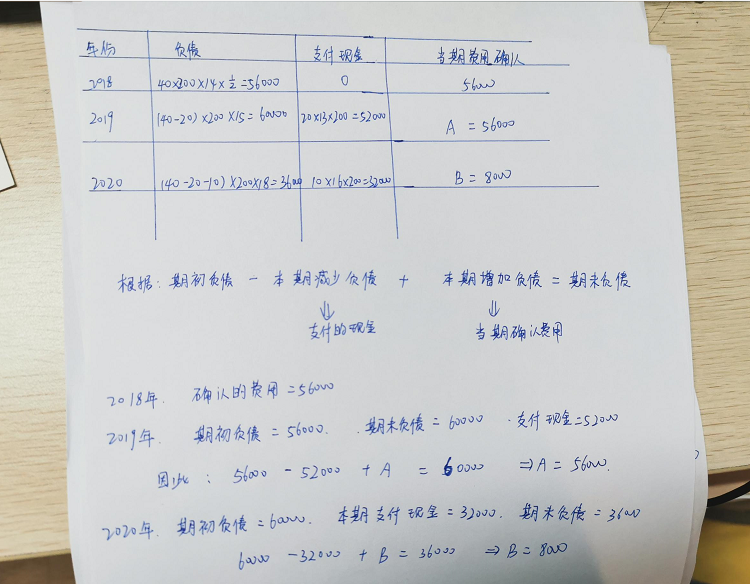 年份 负债 支付现金 当期费用确认
2018 40×200×14×½=56000 0 56000
2019 (40-20)×200×15=60000 20×13×200=52000 A=56000
2020 (40-20-10)×200×18=36000 10×16×200=32000 B=8000
根据:期初负债 - 本期减少负债 + 本期增加负债 = 期末负债
⇓ ⇓
支付的现金 当期确认费用
2018年. 确认的费用=56000
2019年. 期初负债=56000. 期末负债=60000 .支付现金=52000
因此: 56000-52000+A=60000 ⇒A=56000.
2020年. 期初负债=60000. 本期支付现金=32000. 期末负债=36000
60000-32000+B=36000 ⇒B=8000